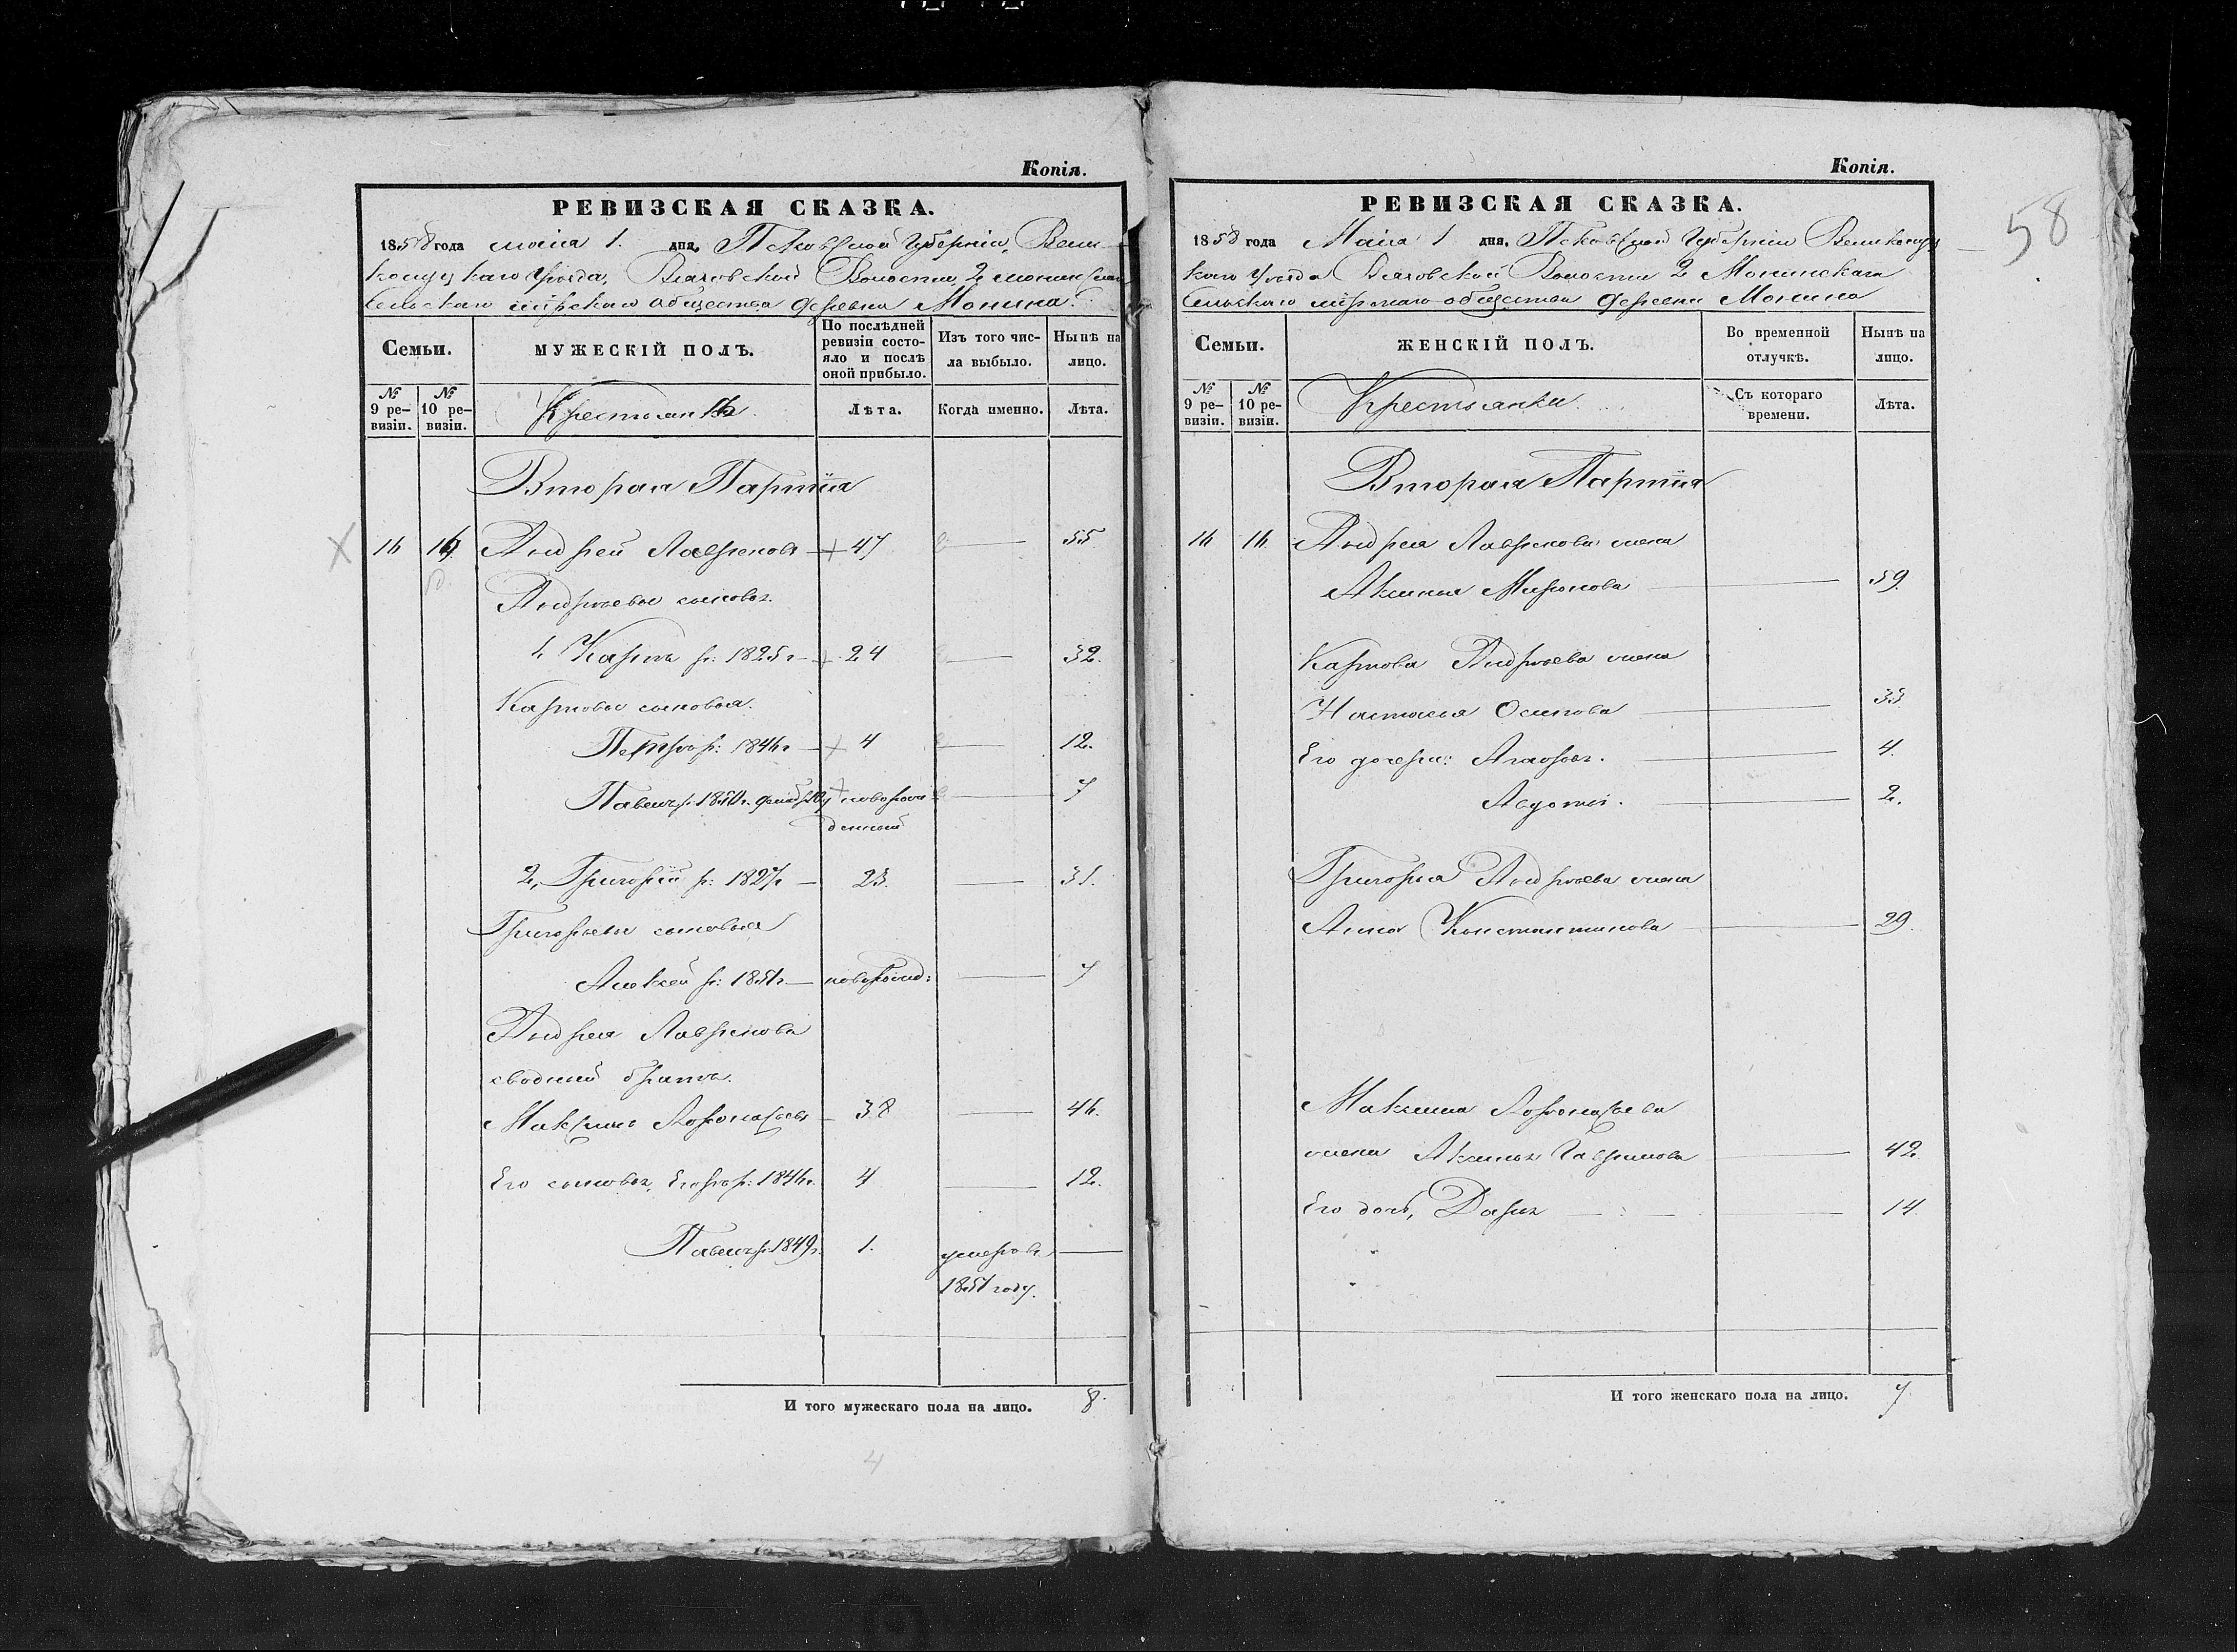 Копія.
РЕВИЗСКАЯ СКАЗКА.
1858 года маіа 1. дня, Псковской Губерніи, Вели-
колуцкаго Уѣзда, Волости, 2
Сельскаго мірскаго общества деревни Монина.
Семьи.
МУЖЕСКІЙ ПОЛЪ.
По послѣдней ревизіи состо-
яло и послѣ оной прибыло.
Изъ того чис-
ла выбыло.
Нынѣ на
лицо.
№ 9 ре-
визіи.
№ 10 ре-
визіи.
Крестьянъ
Лѣта.
Когда именно.
Лѣта.
Вторая Партія
16 16 Андрей Лавреновъ 47 55
Андреевы сыновья.
1, Карпъ р: 1825 г 24 32.
Карповы сыновья.
Петръ р: 1846 г 4 12.
Павелъ р. 1850 г. новорож- 7
денный
2, Григорій р: 1827 г 23. 31.
Григорьевы сыновья
Алексей р: 1851 г новорожд: 7
Андрея Лавренова
сводный братъ.
Максимъ Афонасьевъ 38 46.
Его сыновья, Егоръ р: 1846 г. 4 12.
Павелъ р. 1849 г. 1. умеръ въ
1851 году.
И того мужескаго пола на лицо. 8.
4
Копія.
58
РЕВИЗСКАЯ СКАЗКА.
1858 года Маіа 1 дня, Псковской Губерніи Великолуц
каго Уѣзда Волости 2 Монинскаго
Сельскаго мірскаго общества деревни Монина
Семьи.
ЖЕНСКІЙ ПОЛЪ.
Во временной
отлучкѣ.
Нынѣ на
лицо.
№ 9 ре-
визіи.
№ 10 ре-
визіи.
Крестьянки.
Съ котораго
времени.
Лѣта.
Вторая Партія
16 16. Андрея Лавренова жена
Аксинья Миронова 59.
Карпова Андреева жена
Настасья Осипова 33
Его дочери: 4.
Авдотья. 2.
Григорья Андреева жена
Анна Константинова 29.
Максима Афонасьева
жена Аксинья Гаврилова 42
Его дочь, Дарья 14
И того женскаго пола на лицо. 7